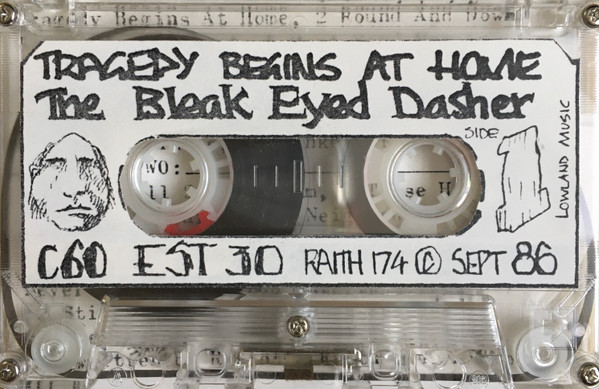 Tragedy Begins At Home, 2 Round And Down
TRAGEDY BEGINS AT HOME
The Bleak Eyed Dasher
SIDE 1
LOWLAND MUSIC
WO:
se H
C60 EST 30 RAITH 174 © SEPT 86